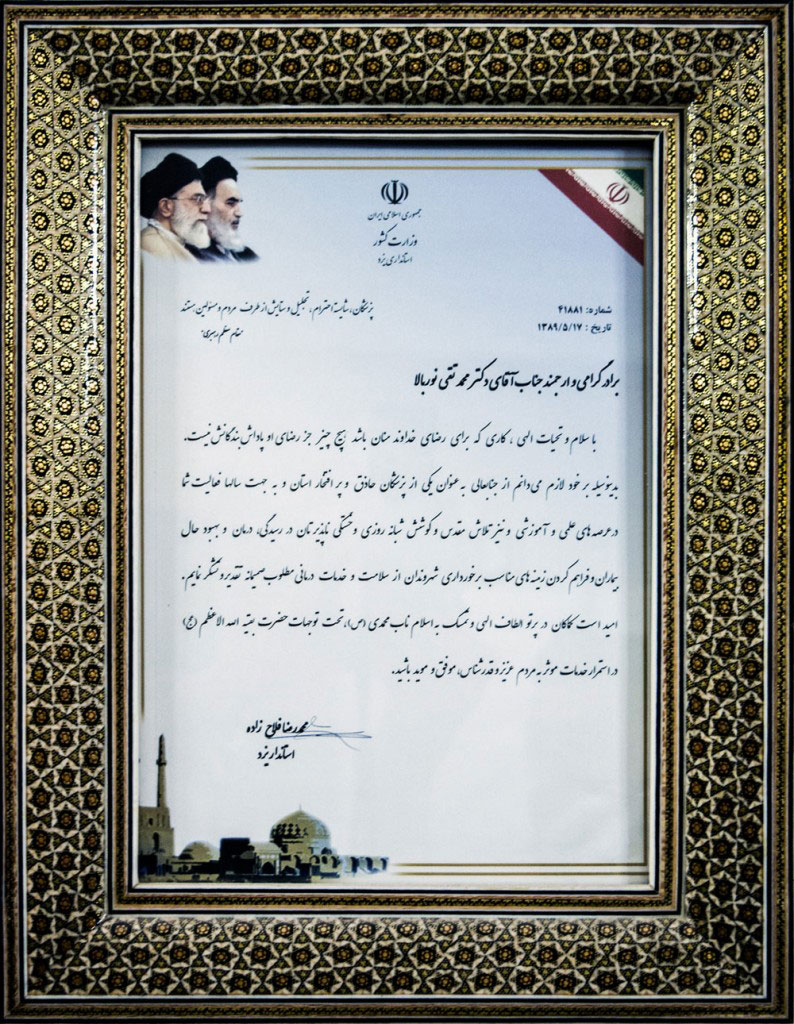 جمهوری اسلامی ایران
وزارت کشور
استانداری یزد
شماره: ۴۱۸۸۱
تاریخ : ۱۳۸۹/۵/۱۷
پزشکان، شایسته احترام، تجلیل و ستایش از طرف مردم و مسئولین هستند
مقام معظم رهبری:
برادر گرامی و ارجمند جناب آقای دکتر محمد تقی نوربالا
با سلام و تحیات الهی ، کاری که برای رضای خداوند منان باشد هیچ چیز جز رضای او پاداش بندگانش نیست.
بدینوسیله بر خود لازم می‌دانم از جنابعالی به عنوان یکی از پزشکان حاذق و پر افتخار استان و به جهت سالها فعالیت شما
در عرصه های علمی و آموزشی و نیز تلاش مقدس و کوشش شبانه روزی و خستگی ناپذیرتان در رسیدگی، درمان و بهبود حال
بیماران و فراهم کردن زمینه های مناسب برخورداری شهروندان از سلامت و خدمات درمانی مطلوب صمیمانه تقدیر و تشکر نمایم.
امید است کماکان در پرتو الطاف الهی و تمسک به اسلام ناب محمدی (ص)، تحت توجهات حضرت بقیه الله الاعظم (عج)
در استمرار خدمات موثر به مردم عزیز و قدرشناس، موفق و موید باشید.
محمدرضا فلاح زاده
استاندار یزد